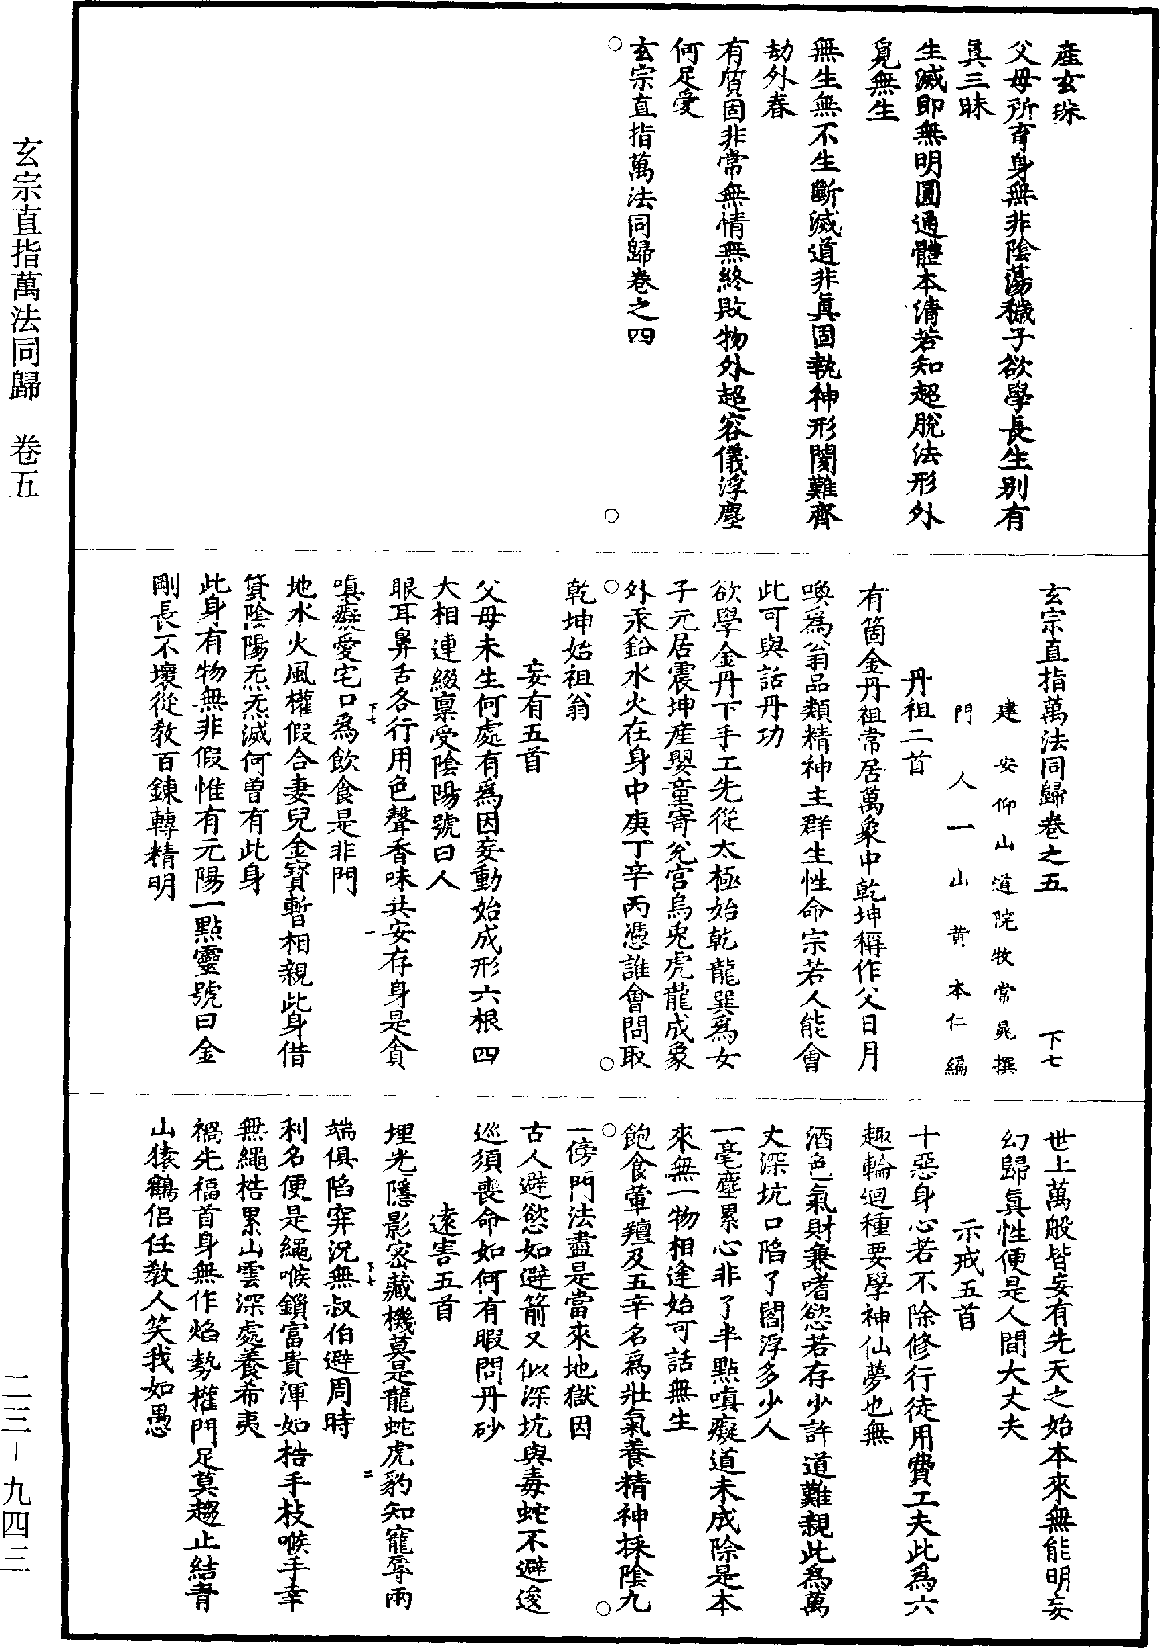 產玄珠
父母所育身無非陰蕩穢子欲學長生別有
真三昧
生滅即無明圓通體本清若知超脫法形外
覓無生
無生無不生斷滅道非真固執神形闌難齊
劫外春
有質固非常無情無終敗物外超容儀浮塵
何足受
玄宗直指萬法同歸卷之四
玄宗直指萬法同歸卷之五
下七
建安仰山道院牧常晁撰
門人一山黃本仁編
丹祖二首
有箇金丹祖常居萬象中乾坤稱作父日月
喚為翁品類精神主群生性命宗若人能會
此可與話丹功
欲學金丹下手工先從太極始乾龍巽為女
子元居震坤產嬰童寄兌宮烏兎虎龍成象
外汞鉛水火在身中庚丁辛丙憑誰會問取
乾坤始祖翁
妄有五首
父母未生何處有為因妄動始成形六根四
大相連綴稟受陰陽號曰人
眼耳鼻舌各行用色聲香味共安存身是貪
嗔癡愛宅口為飲食是非門
下七
一
地水火風權假合妻兒金寶暫相親此身借
貸陰陽炁炁滅何曾有此身
此身有物無非假惟有元陽一點靈號曰金
剛長不壞從教百鍊轉精明
世上萬般皆妄有先天之始本來無能明妄
幻歸真性便是人間大丈夫
示戒五首
十惡身心若不除修行徒用費工夫此為六
趣輪迴種要學神仙夢也無
酒色氣財兼嗜慾若存少許道難親此為萬
丈深坑口陷了閻浮多少人
一毫塵累心非了半點嗔癡道未成除是本
來無一物相逢始可話無生
飽食葷羶及五辛名為壯氣養精神採陰九
一傍門法盡是當來地獄因
古人避慾如避箭又似深坑與毒蛇不避逡
巡須喪命如何有暇問丹砂
遠害五首
埋光隱影密藏機莫是龍蛇虎豹知寵辱兩
端俱陷穽況無叔伯避周時
下七
二
利名便是繩喉鎖富貴渾如梏手杻喉手幸
無繩梏累山雲深處養希夷
禍先福首身無作焰勢權門足莫趨止結青
山猿鶴侶任教人笑我如愚
玄宗直指萬法同歸　卷五
二三－九四三